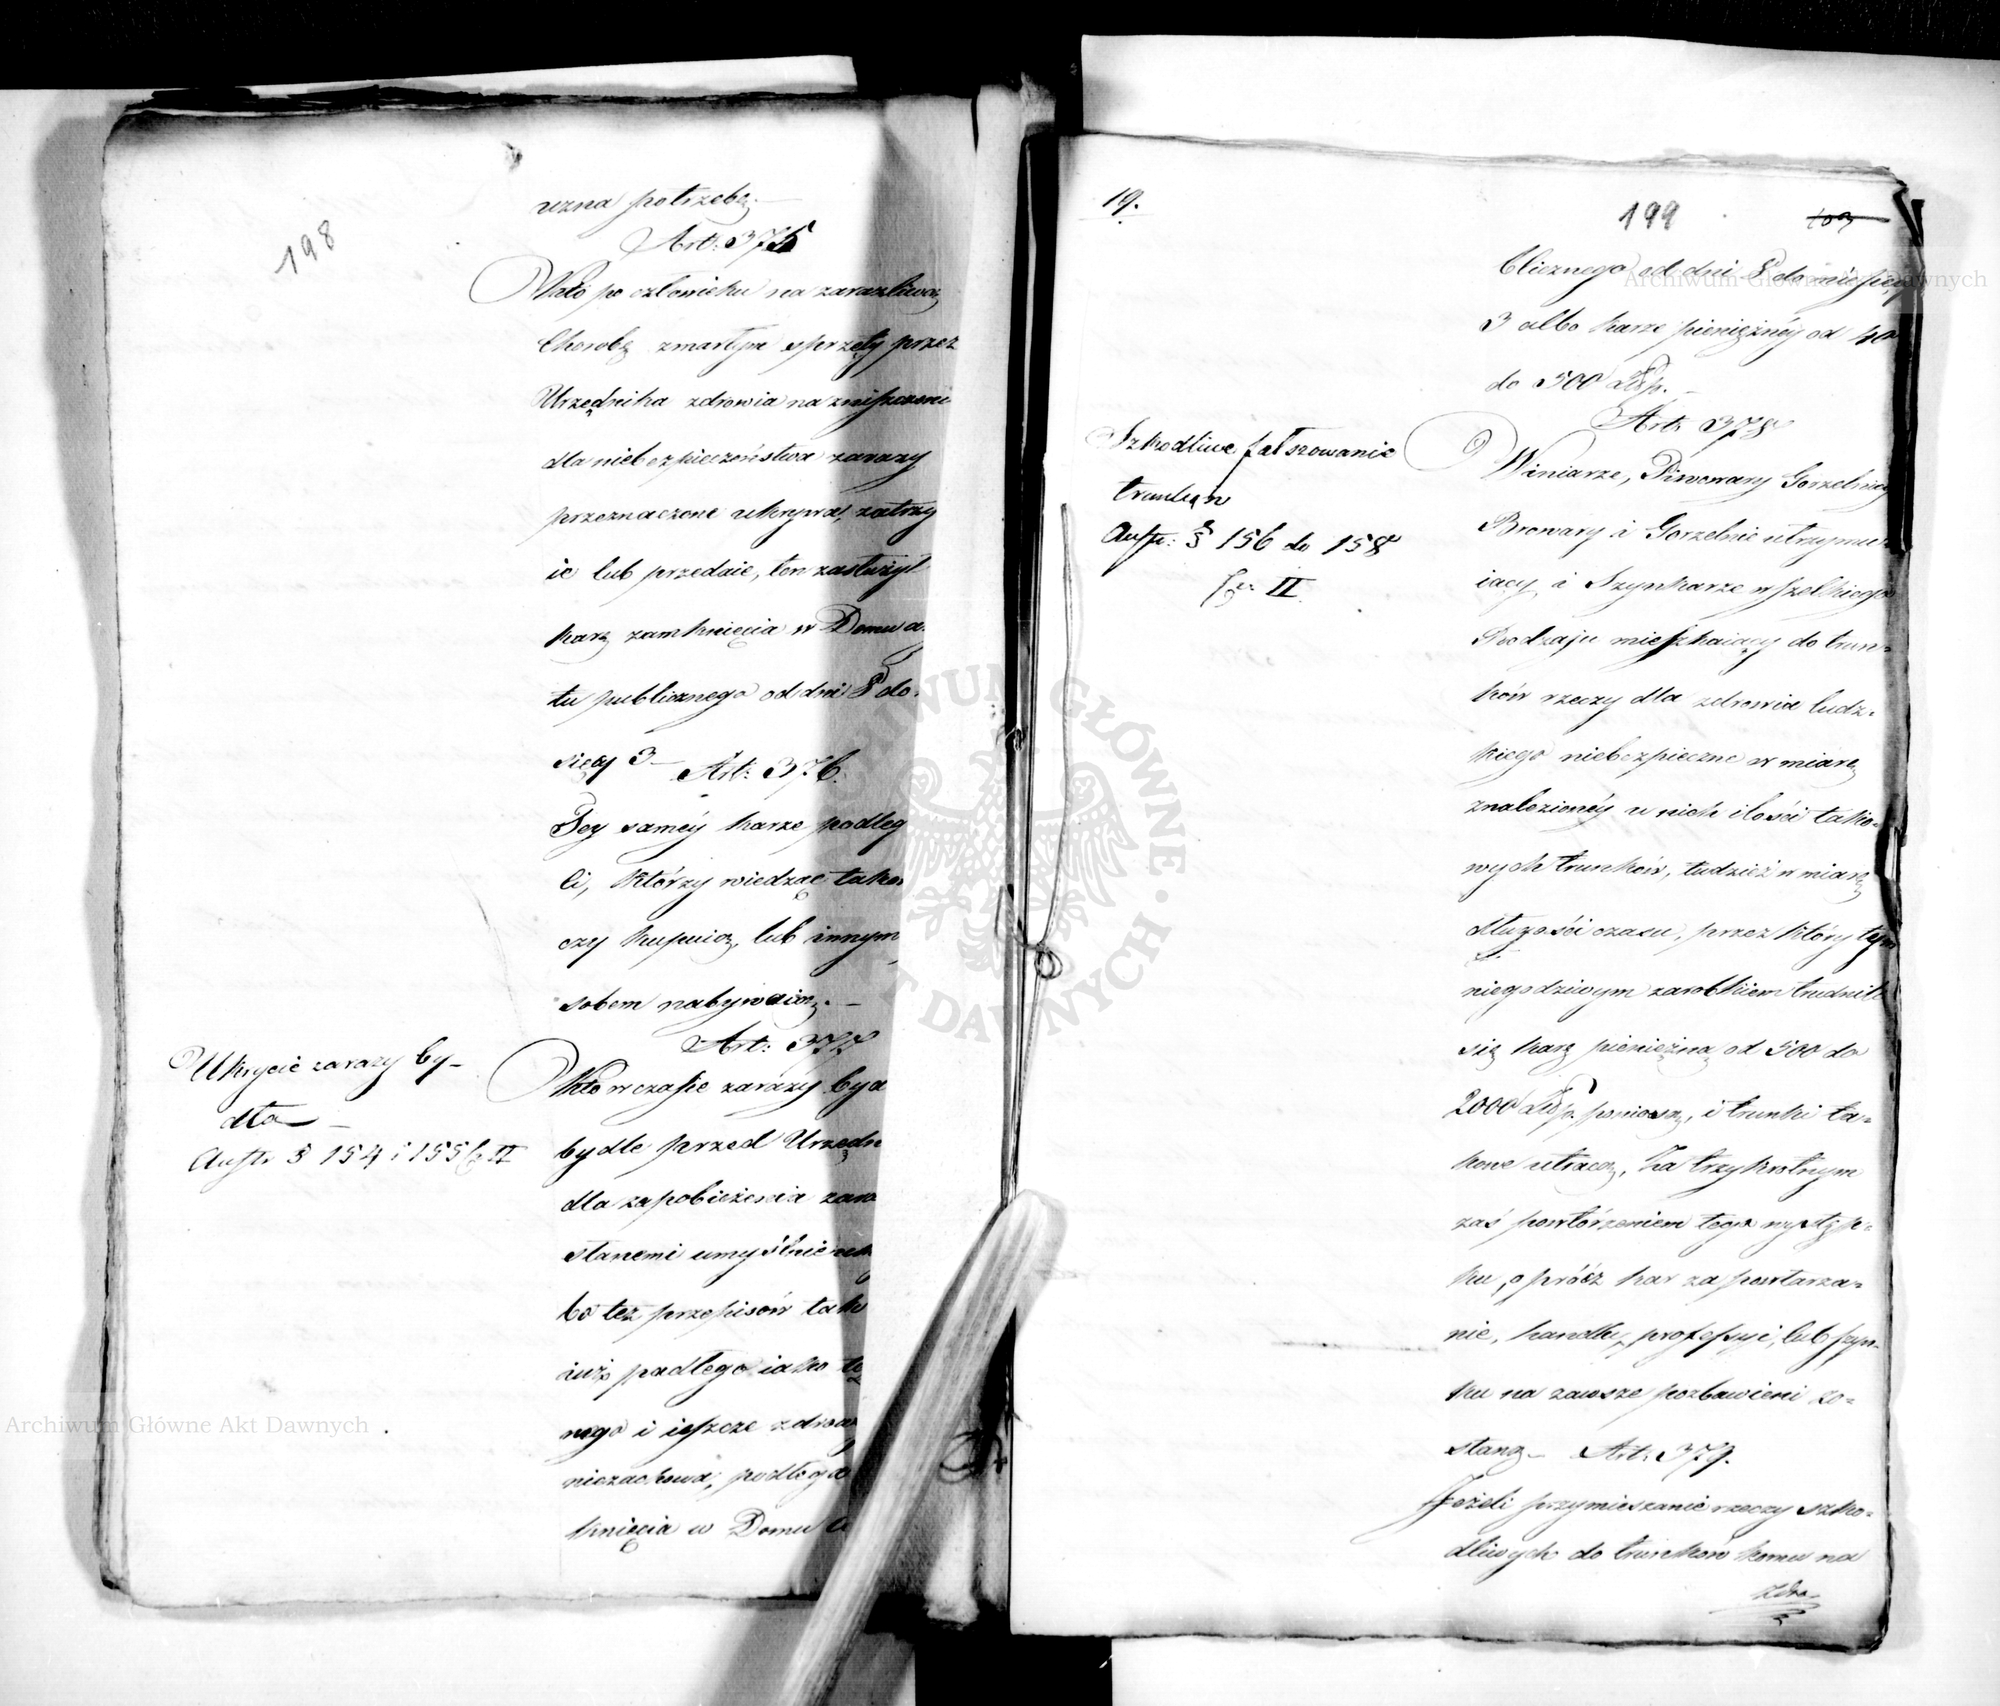 198
uzna potrzebę.—
Art: 375
Kto po człowieku na zaraźliwą
Chorobę zmartym sprzęty przez
Urzędnika zdrowia na zniszczeni
dla niebezpieczeństwa zarazy
przeznaczone ukrywa, zatrzy
ie lub przedaie, ten zasłużył
karę zamknięcia w Domu a
tu publicznego od dni 8 do
sięcy 3— Art: 376.
Tey saméy karze podleg
ci, którzy wiedząc tako
czy kupuią, lub innym
sobem nabywaią.—
Art: 377
Ukrycie zarazy by-
dła—
Austr § 154 i 155 Cz II
Kto w czasie zarazy byd
bydle przed Urzędn
dla zapobieżenia zara
stanemi umyślnie uk
bo też przepisów tak
iuż padłego iako te
nego i ieszcze zdrow
niezachowa, podlega
knięcia w Domu a
19.
199
103
blicznego od dni 8 do miesięcy
3 albo karze pieniężnéy od 40
do 500 Złp.—
Art: 378
Szkodliwe fałszowanie
trunków
Austr: § 156 do 158
Cz: II
Winiarze, Piwowary Gorzelnicy
Browary i Gorzelnie utrzymu-
iący, i Szynkarze wszelkiego
Rodzaju mieszkaiący do trun-
ków rzeczy dla zdrowia ludz-
kiego niebezpieczne w miarę
znalezionéy u nich ilości tako-
wych trunków, tudzież w miarę
długości czasu, przez który tym
niegodziwym zarobkiem trudnili
się karę pieniężną od 500 do
2000 Złp. poniosą, i trunki ta-
kowe utracą, Za trzykrotnym
zaś powtórzeniem tego występ-
ku, oprócz kar za powtarza-
nie, handlu, professyi, lub szyn-
ku na zawsze pozbawieni zo-
staną— Art: 379.
Jeżeli przymieszanie rzeczy szko-
dliwych do trunków komu na
zdro-
Archiwum Główne Akt Dawnych
Archiwum Główne Akt Dawnych
ARCHIWUM GŁÓWNE · AKT DAWNYCH ·